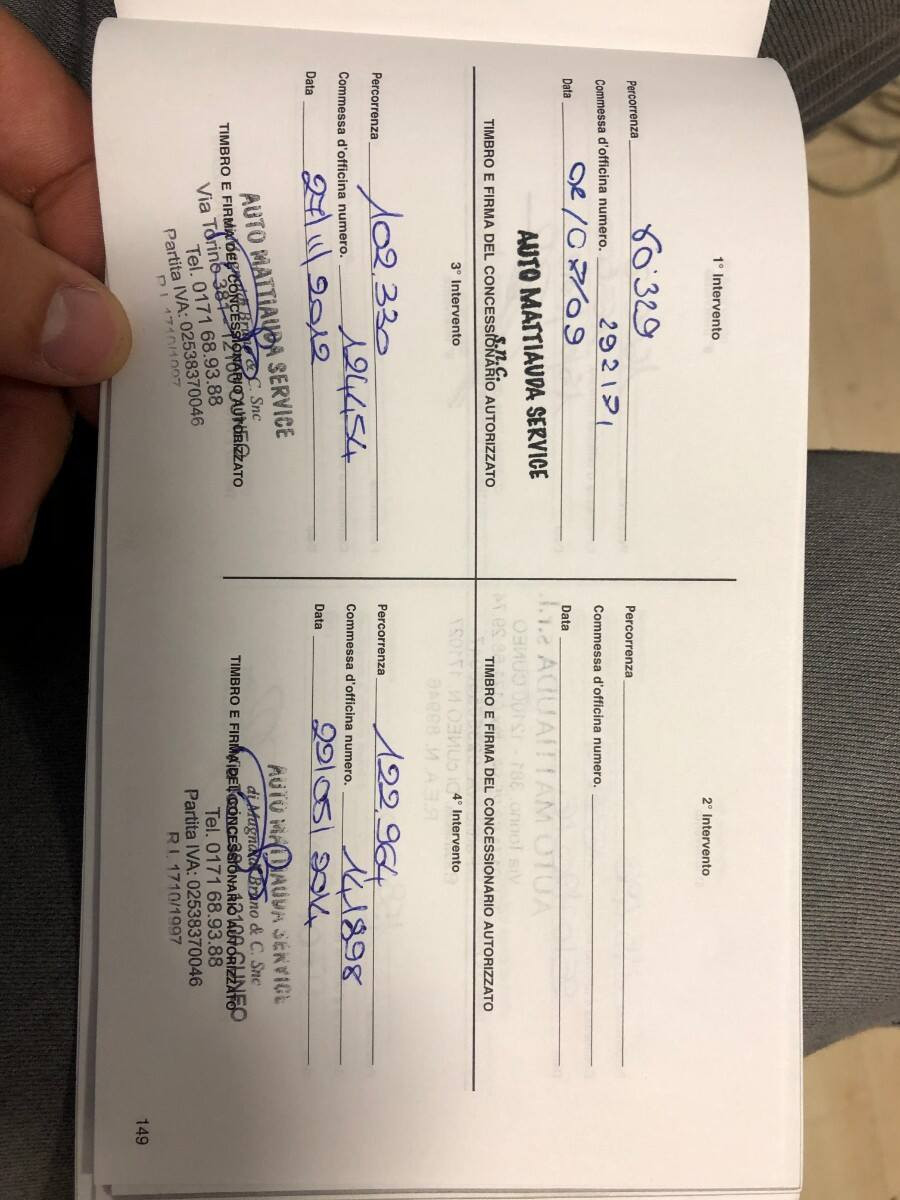 1° Intervento
Percorrenza 60.329
Commessa d'officina numero. 292171
Data 02/07/09
AUTO MATTIAUDA SERVICE
s.n.c.
TIMBRO E FIRMA DEL CONCESSIONARIO AUTORIZZATO
2° Intervento
Percorrenza
Commessa d'officina numero.
Data
TIMBRO E FIRMA DEL CONCESSIONARIO AUTORIZZATO
3° Intervento
Percorrenza 102.330
Commessa d'officina numero. 124454
Data 27/11/2012
AUTO MATTIAUDA SERVICE
Bruno & C. Snc
TIMBRO E FIRMA DEL CONCESSIONARIO AUTORIZZATO
Via Torino 381
Tel. 0171 68.93.88
Partita IVA: 02538370046
R.I. 1710/1997
4° Intervento
Percorrenza 122.964
Commessa d'officina numero. 141898
Data 22/05/2014
AUTO MATTIAUDA SERVICE
Bruno & C. Snc
TIMBRO E FIRMA DEL CONCESSIONARIO AUTORIZZATO
12100 CUNEO
Tel. 0171 68.93.88
Partita IVA: 02538370046
R.I. 1710/1997
149